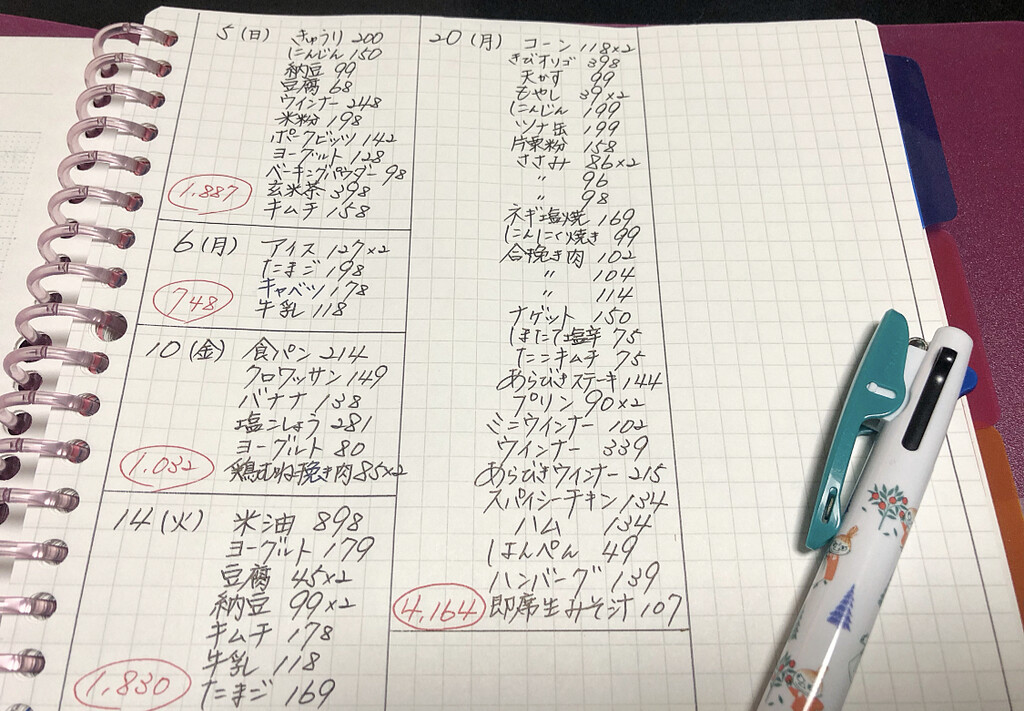 5(日) きゅうり 200
にんじん 150
納豆 99
豆腐 68
ウインナー 248
米粉 198
ポークビッツ 142
ヨーグルト 128
ベーキングパウダー 98
玄米茶 398
キムチ 158
1,887
6(月) アイス 127×2
たまご 198
キャベツ 178
牛乳 118
748
10(金) 食パン 214
クロワッサン 149
バナナ 138
塩こしょう 281
ヨーグルト 80
鶏むね挽き肉 85×2
1,032
14(火) 米油 898
ヨーグルト 179
豆腐 45×2
納豆 99×2
キムチ 178
牛乳 118
たまご 169
1,830
20(月) コーン 118×2
きびオリゴ 398
天かす 99
もやし 39×2
にんじん 199
ツナ缶 199
片栗粉 158
ささみ 86×2
〃 96
〃 98
ネギ塩焼 169
にんにく焼き 99
合挽き肉 102
〃 104
〃 114
ナゲット 150
ほたて塩辛 75
たこキムチ 75
あらびきステーキ 144
プリン 90×2
ミニウインナー 102
ウインナー 339
あらびきウインナー 215
スパイシーチキン 134
ハム 134
はんぺん 49
ハンバーグ 139
即席生みそ汁 107
4,164